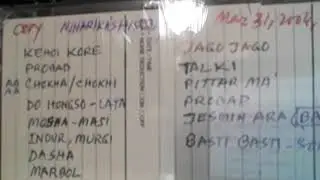 COPY
MAR 31, 2004
KEHOI KORE
PROBAD
CHOKHA/CHOKHI
DO HONGSO-LATA
MOSHA-MASI
INDUR, MURGI
DASHA
MARBOL
JAGO JAGO
TALKI
PITTAR MA'
PROBAD
JESMIN ARA
BASTI BASTI-